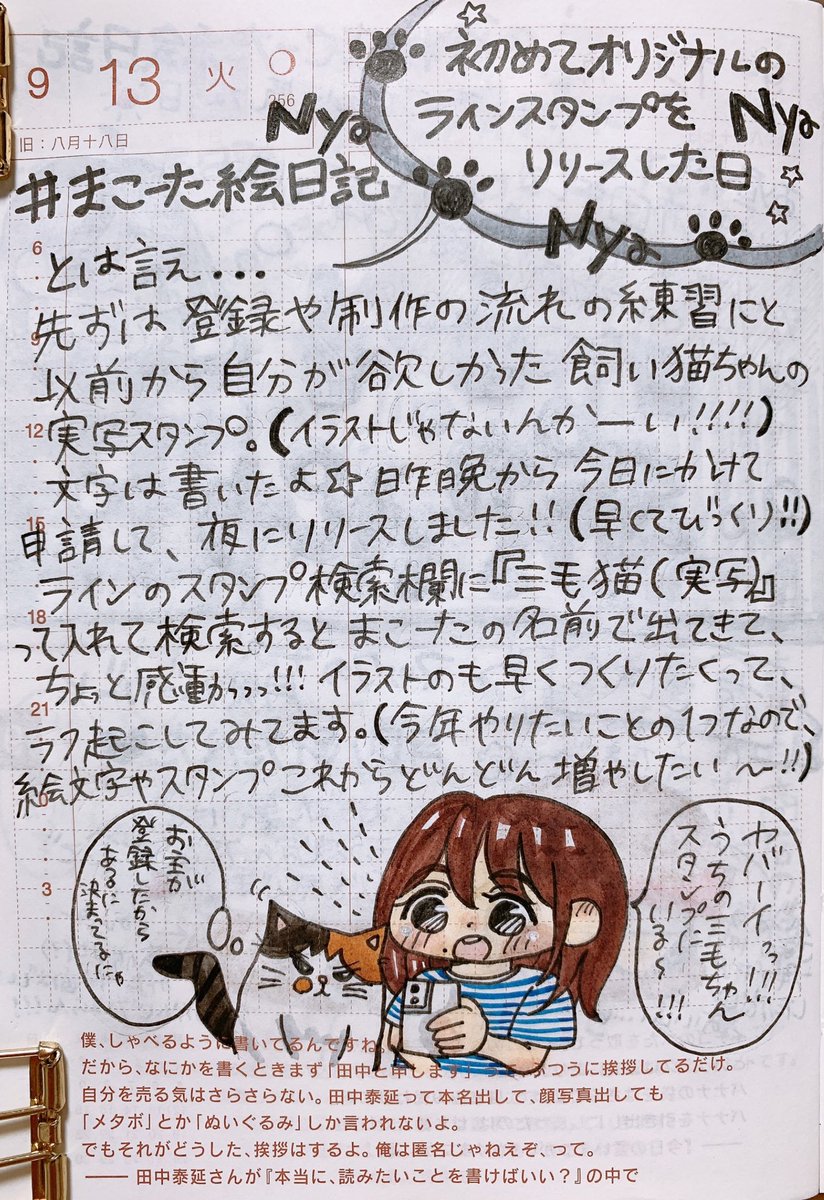 9 13 火
256
旧：八月十八日
初めてオリジナルの
ラインスタンプを
リリースした日
Nya
Nya
Nya
#まこーた絵日記
とは言え...
先ずは登録や制作の流れの練習にと
以前から自分が欲しかった飼い猫ちゃんの
実写スタンプ。(イラストじゃないんかーい!!!!)
文字は書いたよ☆昨晩から今日にかけて
申請して、夜にリリースしました!!(早くてびっくり!!)
ラインのスタンプ検索欄に『三毛猫(実写)』
って入れて検索するとまこーたの名前で出てきて、
ちょっと感動かっっっ!!!イラストのも早くつくりたくって、
ラフ起こしてみてます。(今年やりたいことの1つなので、
絵文字やスタンプこれからどんどん増やしたい〜!!)
6
9
12
15
18
21
0
3
ヤバーイっ!!!
うちの三毛ちゃん
スタンプに
いる〜!!!
お主が
登録したから
あるに
決まってるにゃ
僕、しゃべるように書いてるんですね。
だから、なにかを書くときまず「田中と申します」ふつうに挨拶してるだけ。
自分を売る気はさらさらない。田中泰延って本名出して、顔写真出しても
「メタボ」とか「ぬいぐるみ」しか言われないよ。
でもそれがどうした、挨拶はするよ。俺は匿名じゃねえぞ、って。
—— 田中泰延さんが『本当に、読みたいことを書けばいい？』の中で